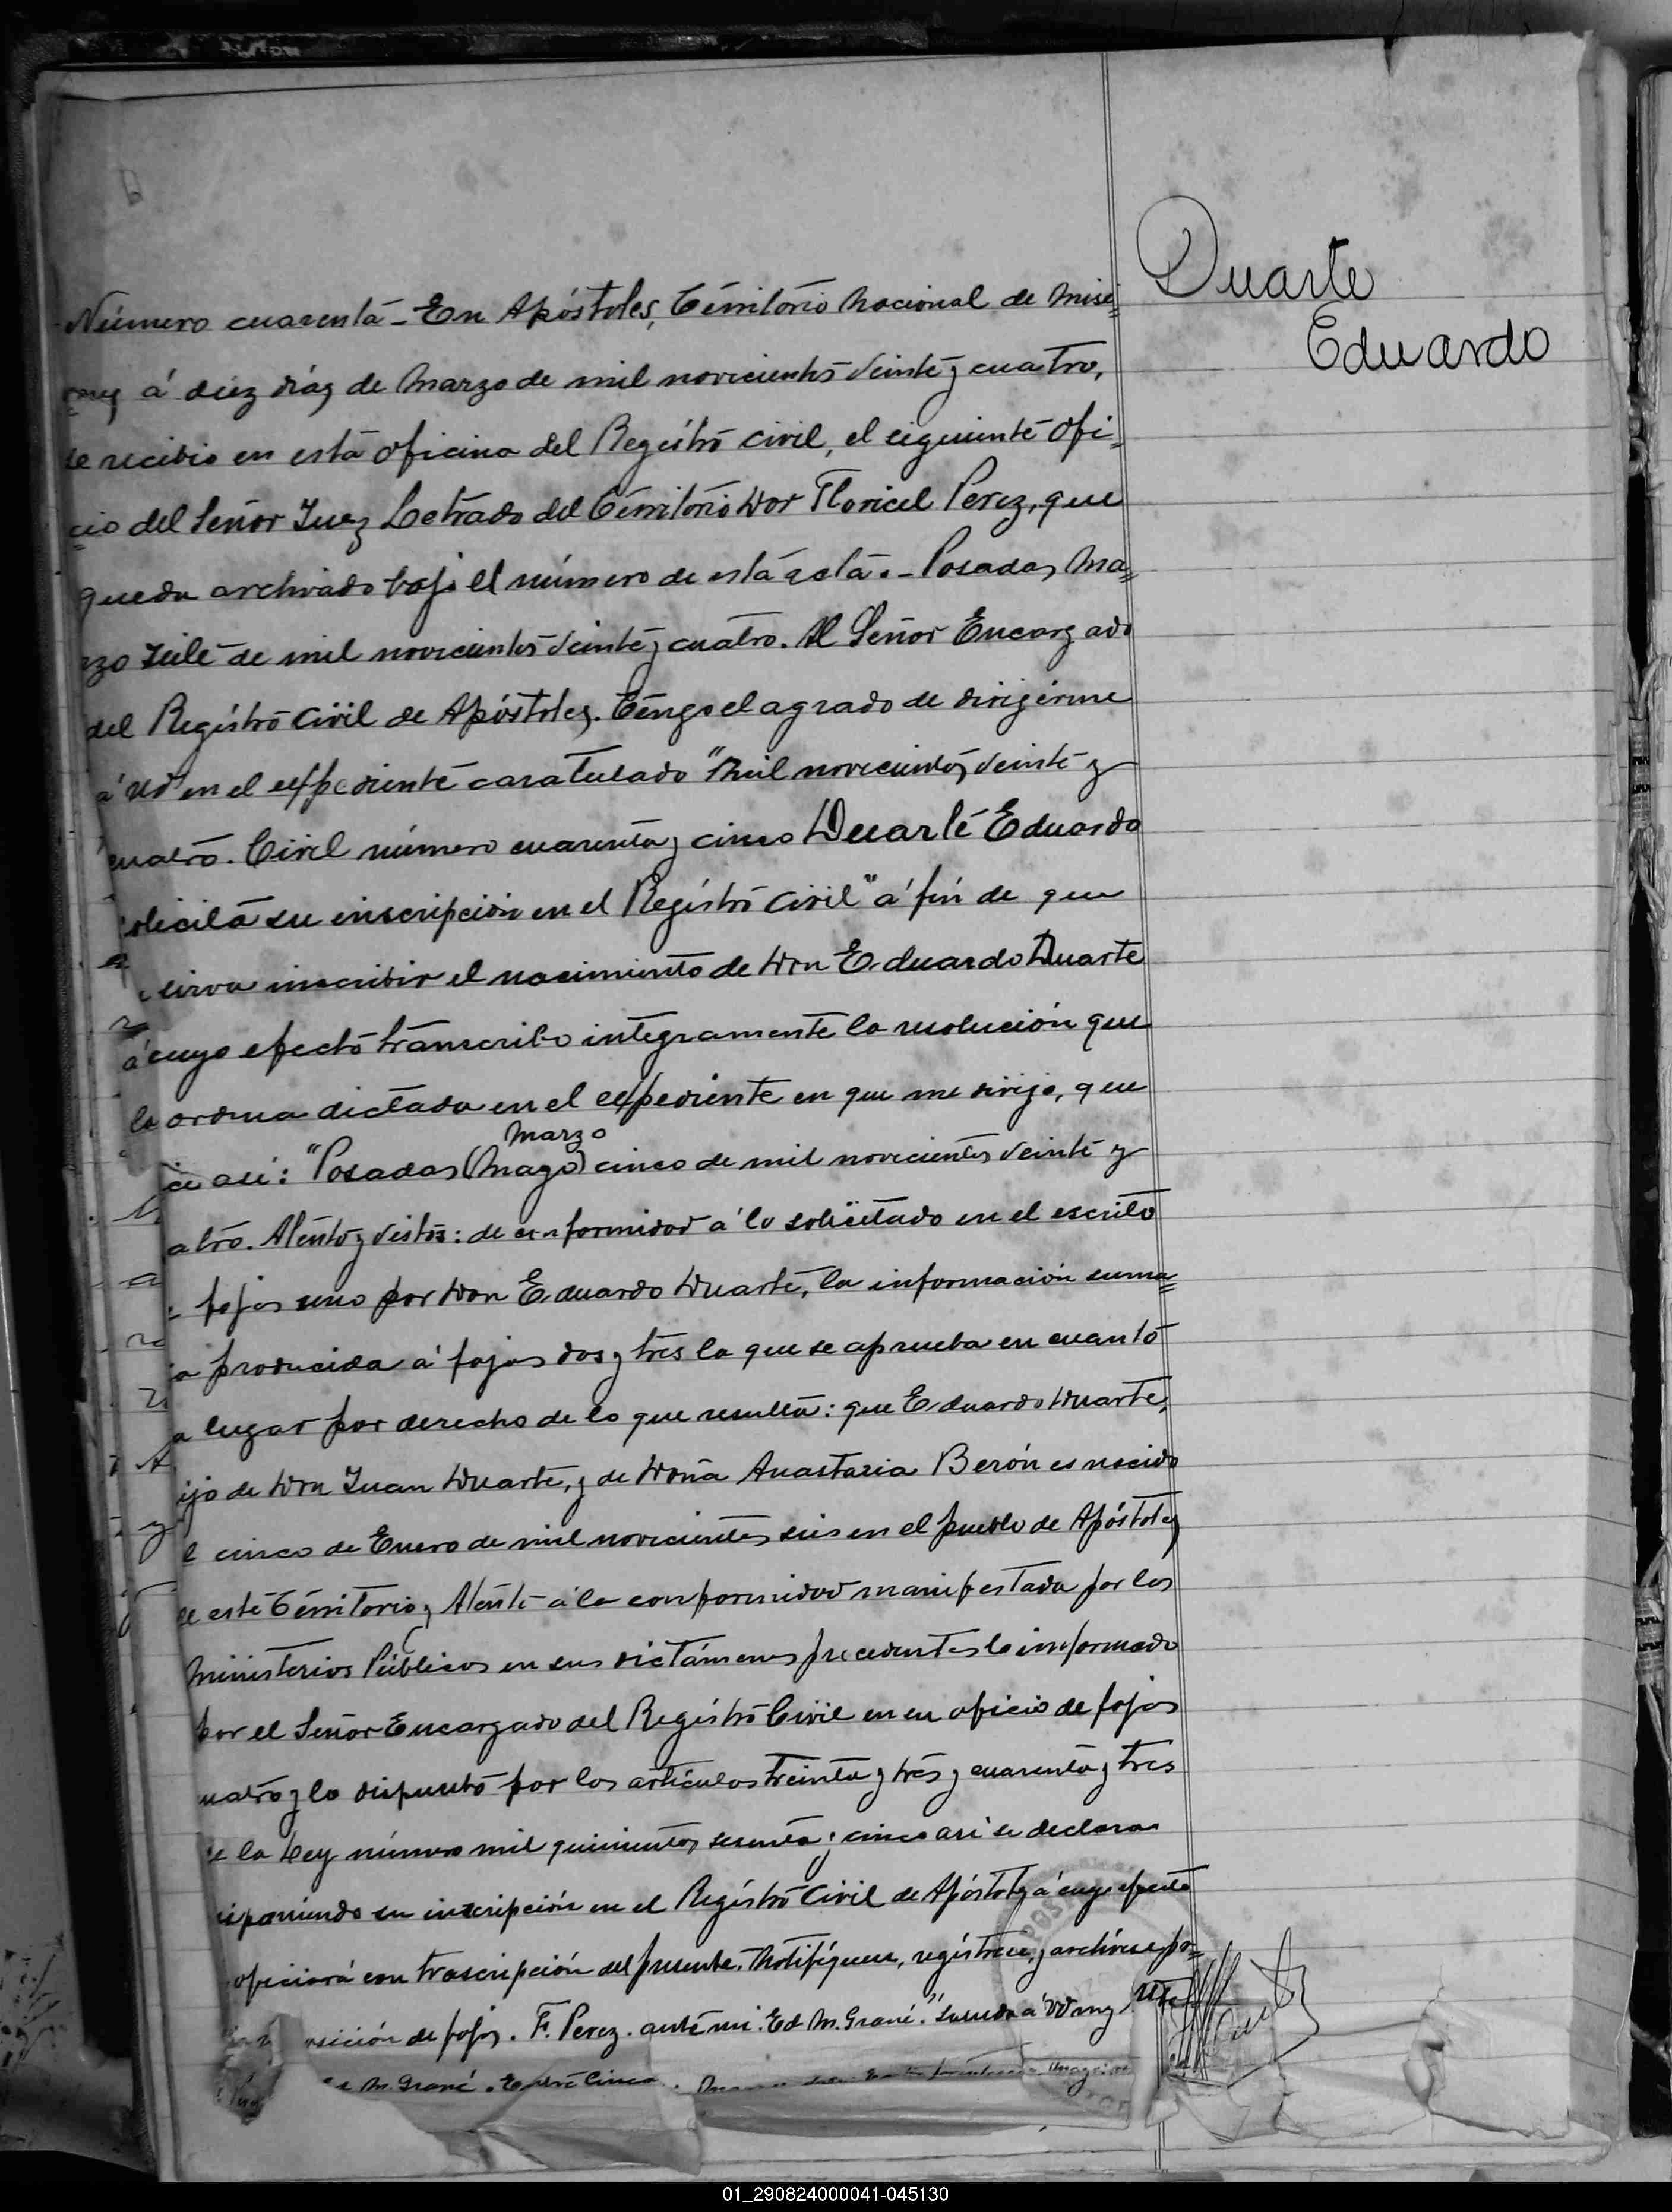 Duarte
Eduardo
Número cuarenta - En Apóstoles, Territorio Nacional de Misi=
ones á diez días de Marzo de mil novecientos veinte y cuatro,
se recibio en esta oficina del Registro civil, el siguiente ofi=
cio del Señor Juez Letrado del Territorio Dor Floricel Perez, que
queda archivado bajo el número de esta acta. - Posadas, Ma=
rzo siete de mil novecientos veinte y cuatro. Al Señor Encargado
del Registro Civil de Apóstoles. Tengo el agrado de dirigirme
á Ud en el expediente caratulado "Mil novecientos veinte y
cuatro. Civil número cuarenta y cinco Duarte Eduardo
solicita su inscripción en el Registro Civil" á fin de que
sirva inscribir el nacimiento de Don Eduardo Duarte
á cuyo efecto transcribo integramente la resolución que
lo ordena dictada en el expediente en que me dirijo, que
Marzo
así: "Posadas (Mayo) cinco de mil novecientos veinte y
atro. Atento y vistos: de conformidad á lo solicitado en el escrito
fojas uno por Don Eduardo Duarte, la información suma=
ia producida á fojas dos y tres la que se aprueba en cuanto
a lugar por derecho de lo que resulta: que Eduardo Duarte,
ijo de Don Juan Duarte, y de Doña Anastasia Berón es nacido
el cinco de Enero de mil novecientos seis en el pueblo de Apóstoles
de este Territorio, Atento á la conformidad manifestada por los
Ministerios Públicos en sus dictámenes precedentes lo informado
por el Señor Encargado del Registro Civil en su oficio de fojas
uatro y lo dispuesto por los artículos treinta y tres y cuarenta y tres
de la Ley número mil quinientos sesenta y cinco así se declara
isponiendo su inscripción en el Registro Civil de Apóstoles á cuyo efecto
oficiará con trascripción del presente. Notifíquese, regístrese, y archívese po=
sición de fojas. F. Perez. ante mi. Ed M. Grané." Saluda á Ud muy
M. Grané. Entre Cinco
01_290824000041-045130